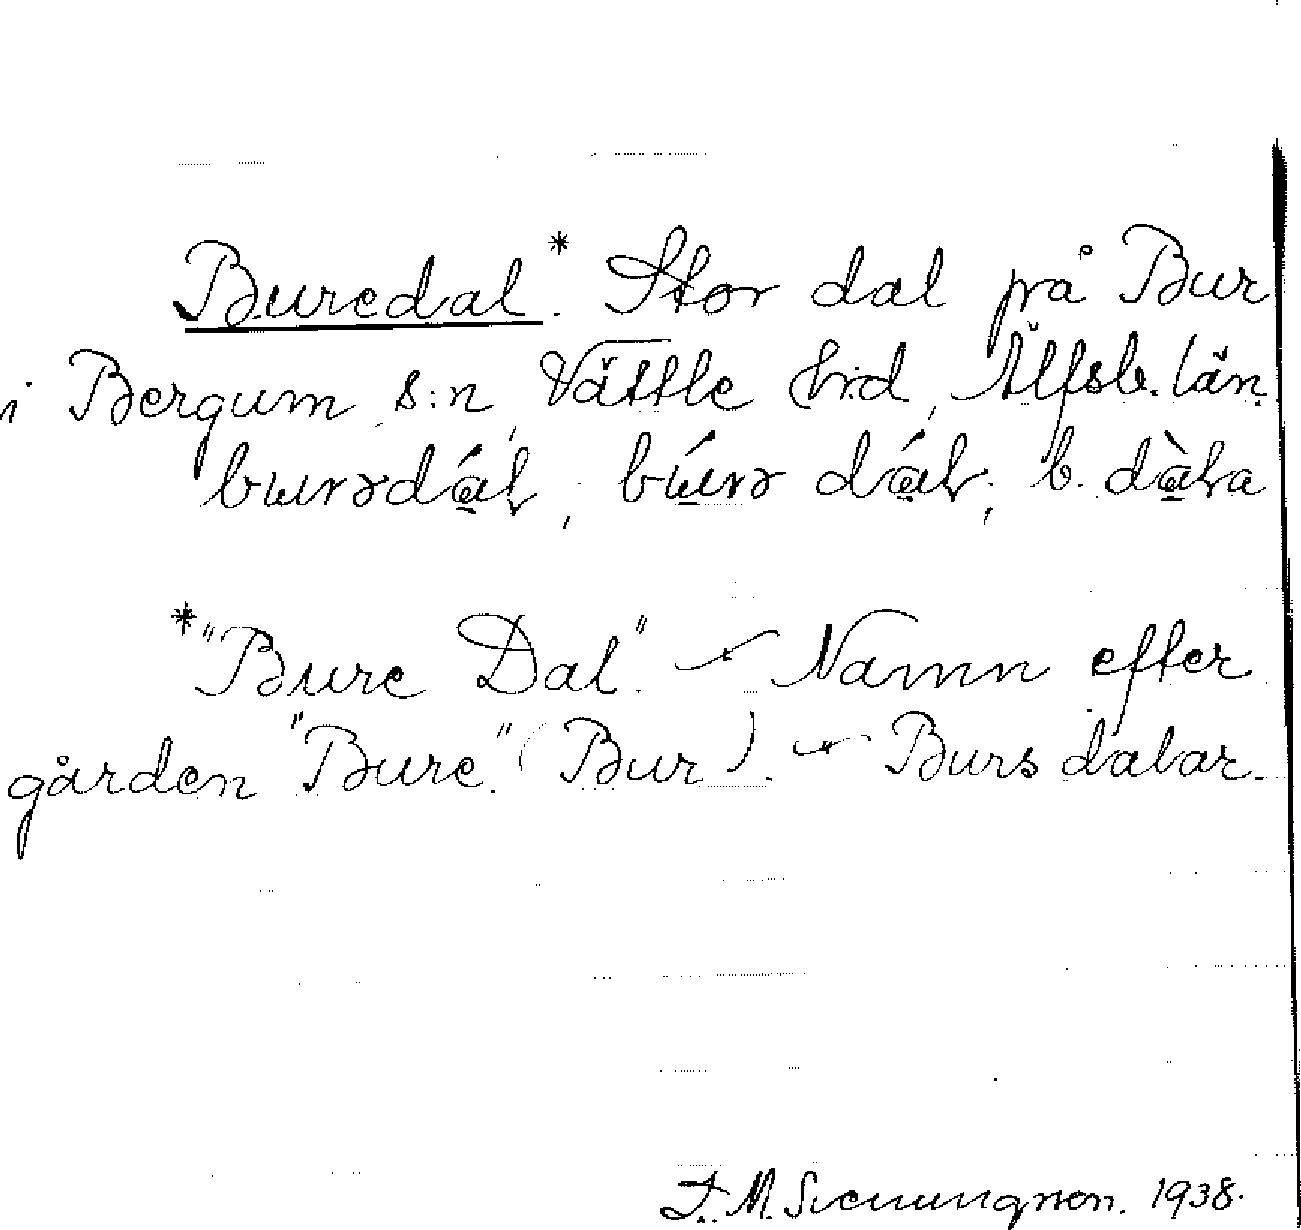 Buredal.* Stor dal på Bur
i Bergum s:n, Vättle hrd, Älfsb. län.
burədáɫ, búrə dáɫ; b. dàɫa
*"Bure Dal". - Namn efter
gården "Bure." (Bur). - Burs dalar.
M. 1938.